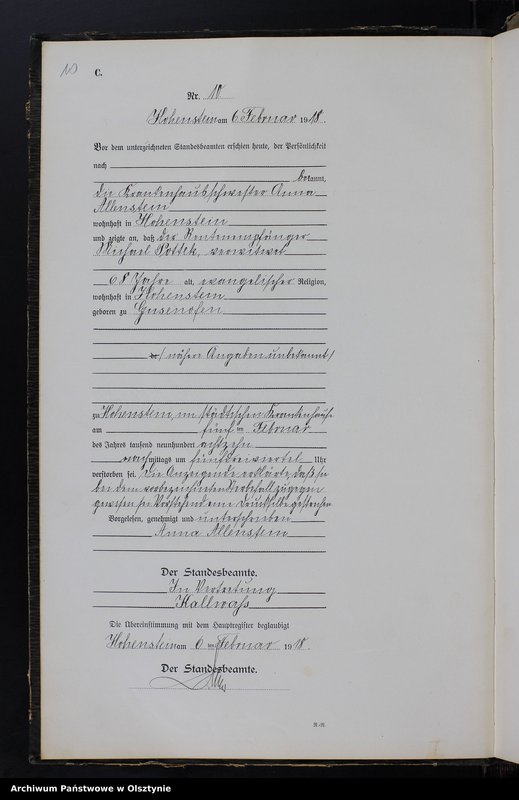 10
C.
Nr. 10
Hohenstein am 6 Februar 1918.
Vor dem unterzeichneten Standesbeamten erschien heute, der Persönlichkeit
nach
bekannt,
die Krankenhausschwester Anna
Allenstein
wohnhaft in Hohenstein
und zeigte an, daß der Rentenempfänger
Michael Pottek, verwitwet
68 Jahre alt, evangelischer Religion,
wohnhaft in Hohenstein
geboren zu Gusenofen
/nähere Angaben unbekannt/
zu Hohenstein, im städtischen Krankenhause
am fünften Februar
des Jahres tausend neunhundert achtzehn
nachmittags um fünfdreiviertel Uhr
verstorben sei. Die Anzeigende erklärte, daß sie
bei dem vorbezeichneten Sterbefall zugegen
gewesen sei. Vorstehend eine Drucksilbe gestrichen
Vorgelesen, genehmigt und unterschrieben
Anna Allenstein
Der Standesbeamte.
In Vertretung
Kallwass
Die Übereinstimmung mit dem Hauptregister beglaubigt
Hohenstein am 6 ten Februar 1918.
Der Standesbeamte.
Archiwum Państwowe w Olsztynie